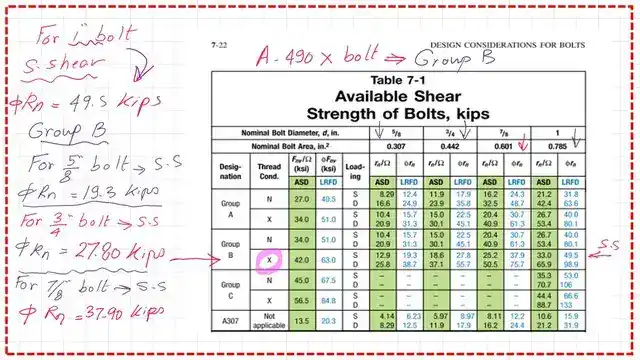 For 1" bolt
S. shear
ϕRn = 49.5 kips
Group B
For 5/8" bolt → S.S
ϕRn = 19.3 kips
For 3/4" bolt → S.S
ϕRn = 27.80 kips
For 7/8 bolt → S.S
ϕ Rn = 37.90 kips
7-22 DESIGN CONSIDERATIONS FOR BOLTS
A-490 X bolt ⇒ Group B
Table 7-1
Available Shear
Strength of Bolts, kips
Nominal Bolt Diameter, d, in. 5/8 3/4 7/8 1
Nominal Bolt Area, in.² 0.307 0.442 0.601 0.785
Desig-nation Thread Cond. Fnv/Ω (ksi) ϕFnv (ksi) Load-ing rn/Ω ϕrn rn/Ω ϕrn rn/Ω ϕrn rn/Ω ϕrn
ASD LRFD ASD LRFD ASD LRFD ASD LRFD ASD LRFD
Group A N 27.0 40.5 S 8.29 12.4 11.9 17.9 16.2 24.3 21.2 31.8
D 16.6 24.9 23.9 35.8 32.5 48.7 42.4 63.6
X 34.0 51.0 S 10.4 15.7 15.0 22.5 20.4 30.7 26.7 40.0
D 20.9 31.3 30.1 45.1 40.9 61.3 53.4 80.1
Group B N 34.0 51.0 S 10.4 15.7 15.0 22.5 20.4 30.7 26.7 40.0
D 20.9 31.3 30.1 45.1 40.9 61.3 53.4 80.1
X 42.0 63.0 S 12.9 19.3 18.6 27.8 25.2 37.9 33.0 49.5 S.S
D 25.8 38.7 37.1 55.7 50.5 75.7 65.9 98.9
Group C N 45.0 67.5 S – – – – – – 35.3 53.0
D – – – – – – 70.7 106
X 56.5 64.8 S – – – – – – 44.4 66.6
D – – – – – – 88.7 133
A307 Not applicable 13.5 20.3 S 4.14 6.23 5.97 8.97 8.11 12.2 10.6 15.9
D 8.29 12.5 11.9 17.9 16.2 24.4 21.2 31.9